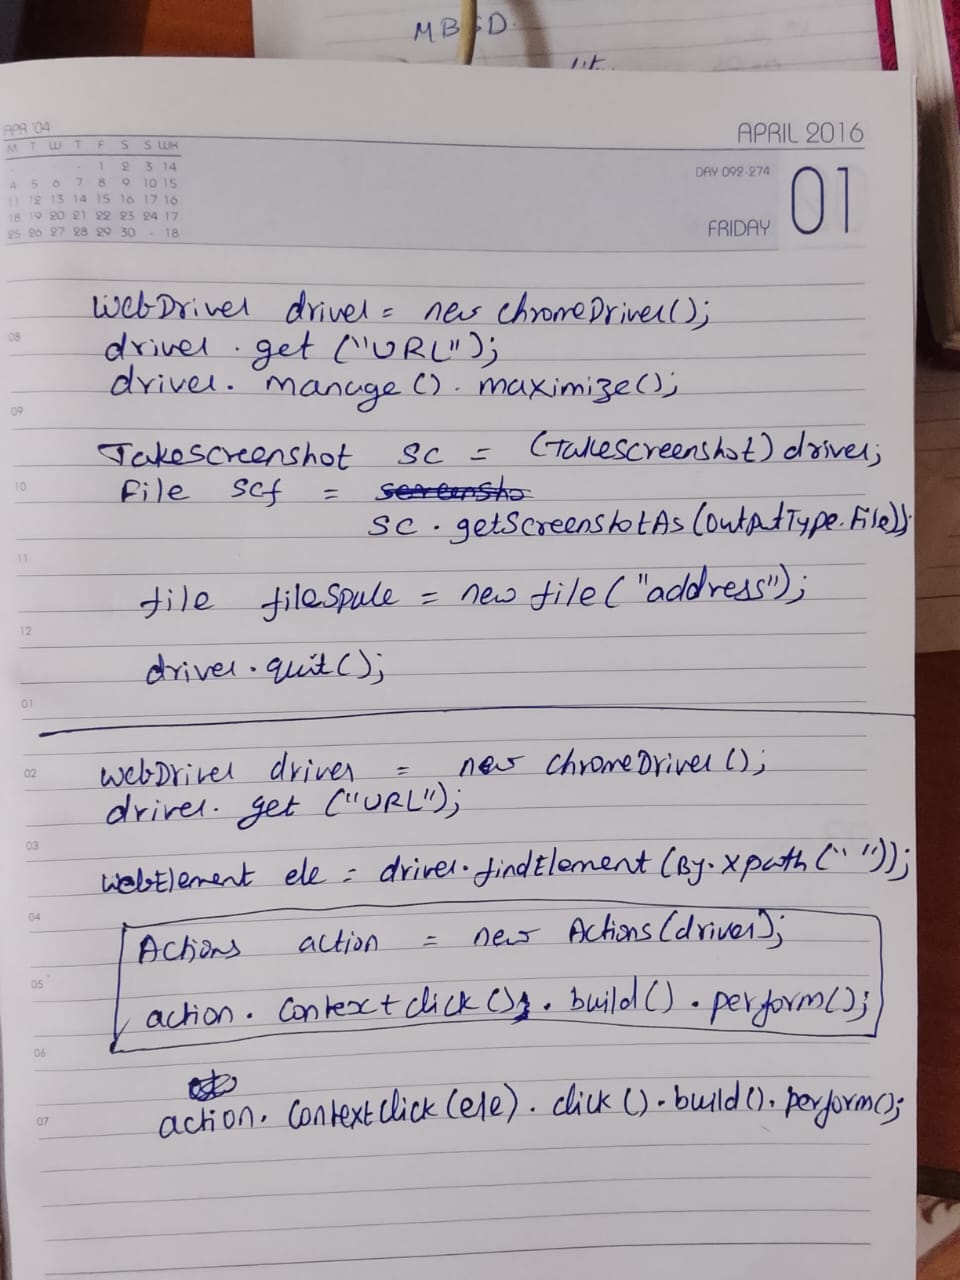 MBSD.
lit
APR '04
M T W T F S S WK
- 1 2 3 14
4 5 6 7 8 9 10 15
11 12 13 14 15 16 17 16
18 19 20 21 22 23 24 17
25 26 27 28 29 30 - 18
APRIL 2016
DAY 092-274
01
FRIDAY
WebDriver driver = new chromeDriver();
08
driver . get ("URL");
driver. manage(). maximize();
09
Takescreenshot sc = (Takescreenshot) driver;
10
File scf = screensho
sc . getScreenshotAs (OutputType.File));
11
file = new file ("address");
12
driver.quit();
01
02
WebDriver driver = new chromeDriver();
driver. get ("URL");
03
WebElement ele = driver.findElement (By.xpath (" "));
04
Actions action = new Actions(driver);
05
action. Contextclick(); . build() . perform();
06
07
action. Contextclick (ele). click (). build(). perform();